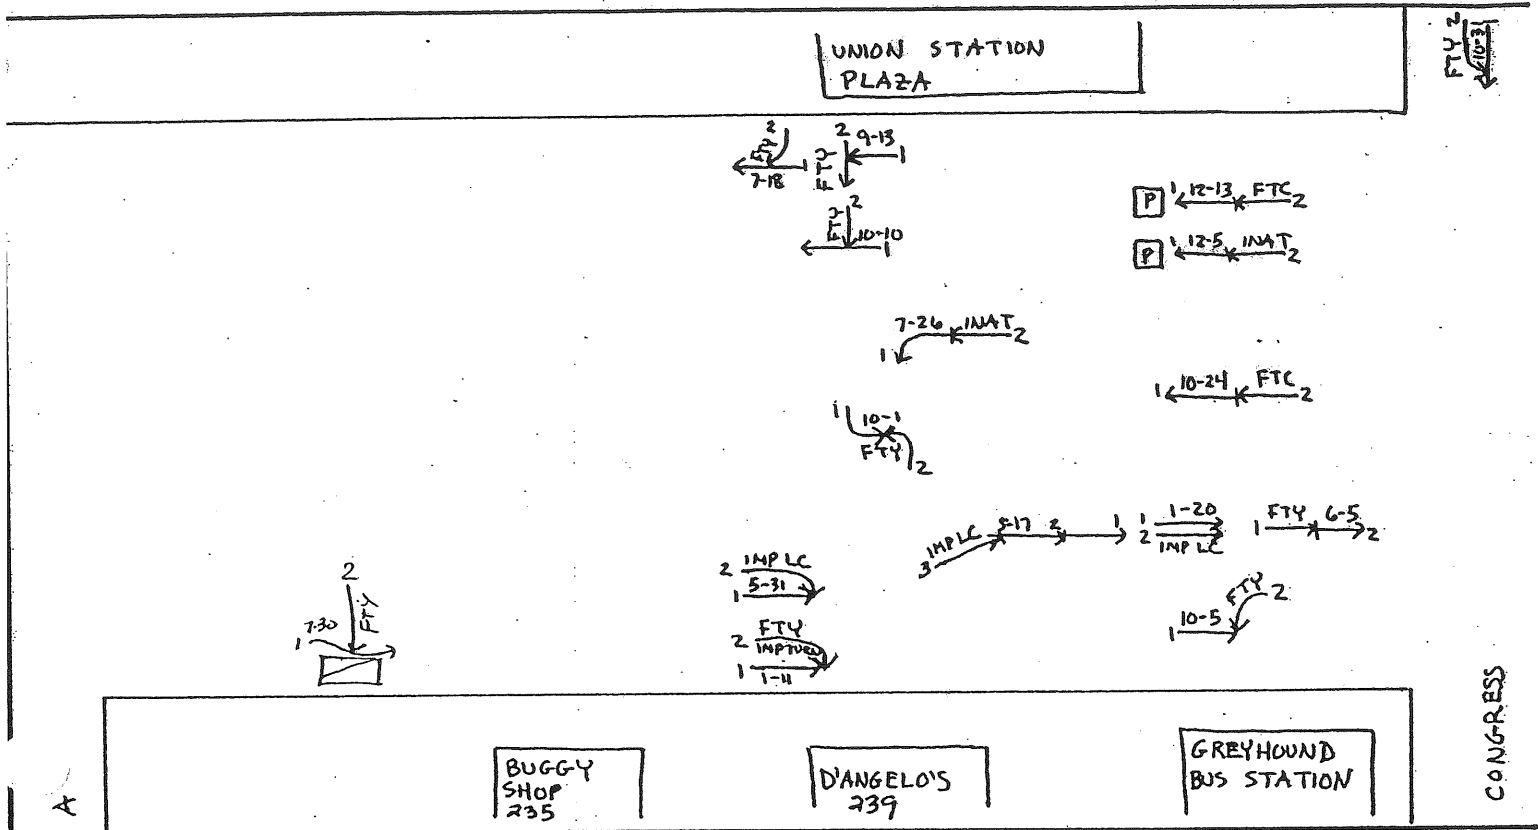 UNION STATION
PLAZA
FTY 2
10-31
FTY 2
7-18
1
2
FTY
9-13
1
2
FTY
10-10
1
P 1 12-13 FTC 2
P 1 12-5 INAT 2
7-26 INAT 2
1
1 10-24 FTC 2
1
10-1
FTY
2
3 IMP LC 5-17 2 1
1 1-20
2 IMP LC
1 FTY 6-5 2
2 IMP LC
1 5-31
2 FTY
IMPTURN
1 1-11
FTY 2
1 10-5
2
FTY
1 7-30
BUGGY
SHOP
235
D'ANGELO'S
239
GREYHOUND
BUS STATION
CONGRESS
A